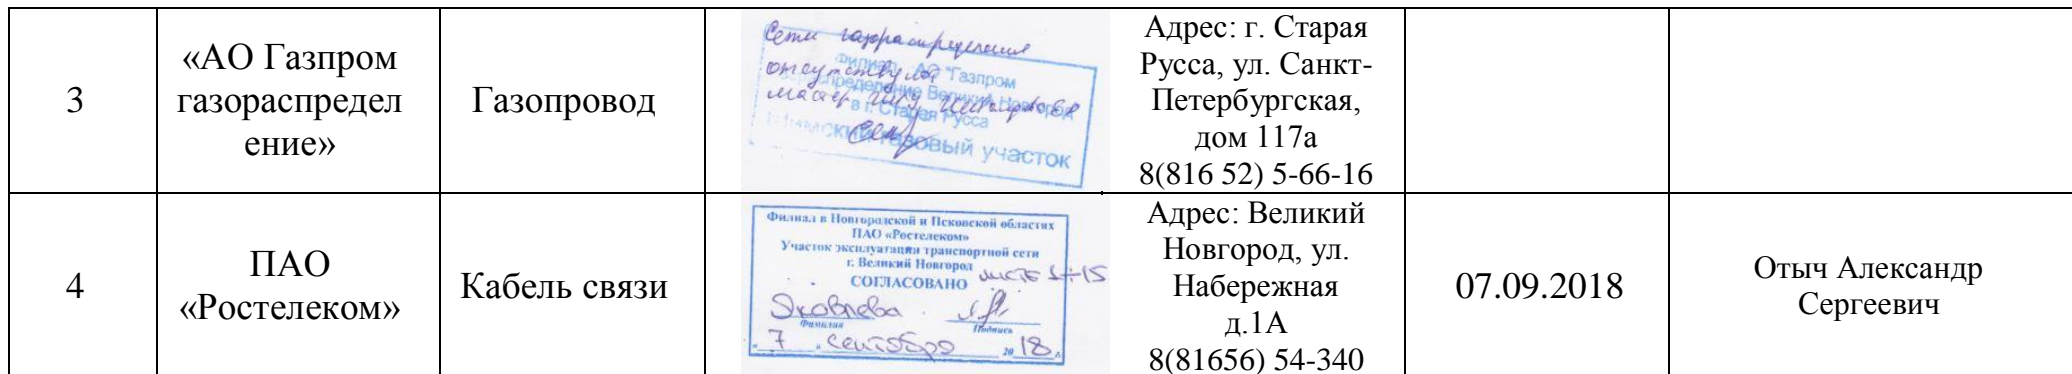 3
«АО Газпром
газораспредел
ение»
Газопровод
Сети газораспределения
отсутствуют
мастер
Филиал АО "Газпром
газораспределение Великий Новгород"
в г. Старая Русса
Шимский газовый участок
Адрес: г. Старая
Русса, ул. Санкт-
Петербургская,
дом 117а
8(816 52) 5-66-16
4
ПАО
«Ростелеком»
Кабель связи
Филиал в Новгородской и Псковской областях
ПАО «Ростелеком»
Участок эксплуатации транспортной сети
г. Великий Новгород
лист 1÷15
СОГЛАСОВАНО
Яковлева
Фамилия
Подпись
« 7 » сентября 20 18 г.
Адрес: Великий
Новгород, ул.
Набережная
д.1А
8(81656) 54-340
07.09.2018
Отыч Александр
Сергеевич